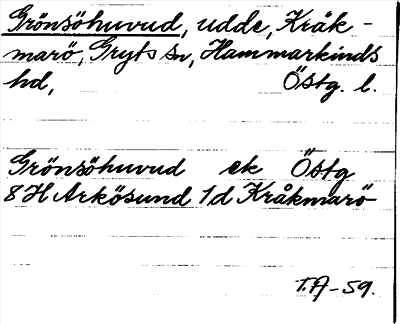 Grönsöhuvud, udde, Kråk-
marö, Gryts sn, Hammarkinds
hd, Östg. l.
Grönsöhuvud ek Östg
8 H Arkösund 1 d Kråkmarö
T.A-59.